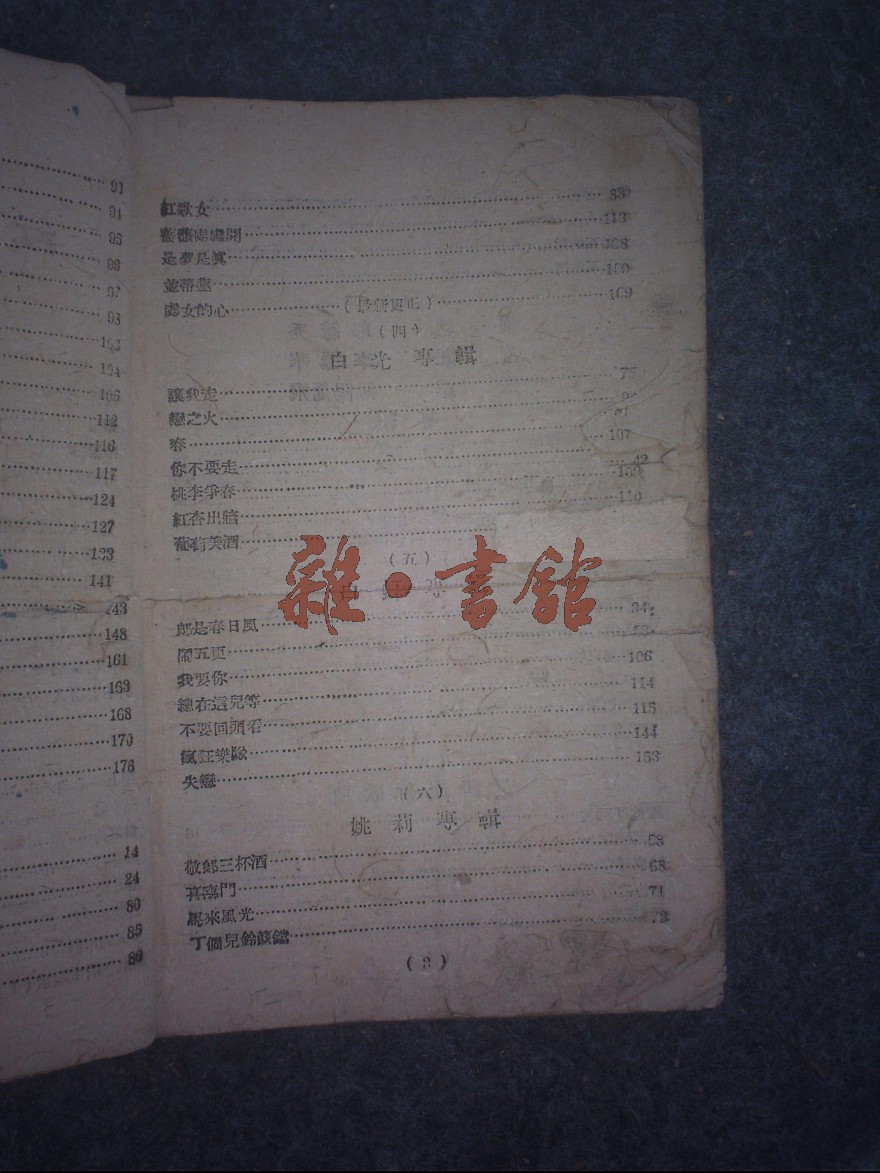 93
94
95
96
97
98
103
104
106
112
116
117
124
127
133
141
143
148
161
163
168
170
176
14
24
80
85
86
紅歌女 83
薔薇處處開 113
是夢是眞 138
並蒂蓮 159
處女的心 (最新更正) 169
(四)
白光 專輯
讓我走
戀之火
春
你不要走 107
桃李爭春 42
紅杏出牆
葡萄美酒 110
(五)
雜·書館
郎是春日風 34
鬧五更
我要你 106
總在這兒等 114
不要回頭看 115
瘋狂樂隊 144
失戀 153
(六)
姚莉專輯
敬郎三杯酒 58
喜臨門 68
馬來風光 71
丁個兒鈴餕鐺
(3)